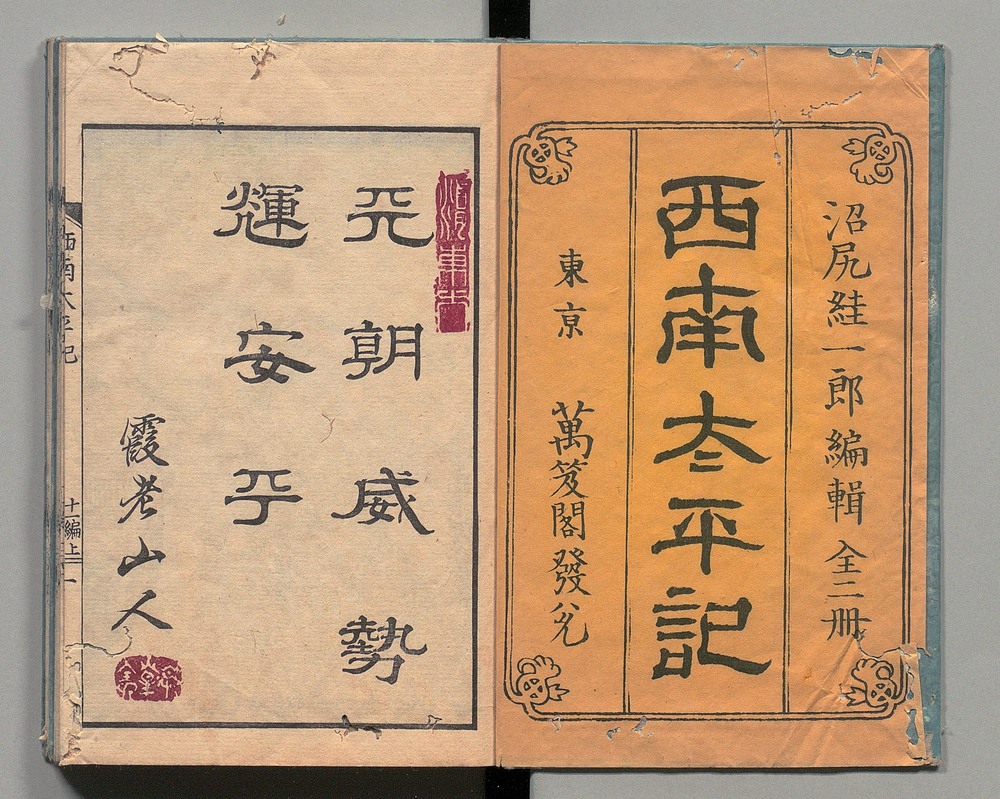 沼尻絓一郎編輯 全二冊
西南夳平記
東京 萬笈閣發兌
天朝威勢
輝安平
霞老山人
西南太平記 十一編上 一